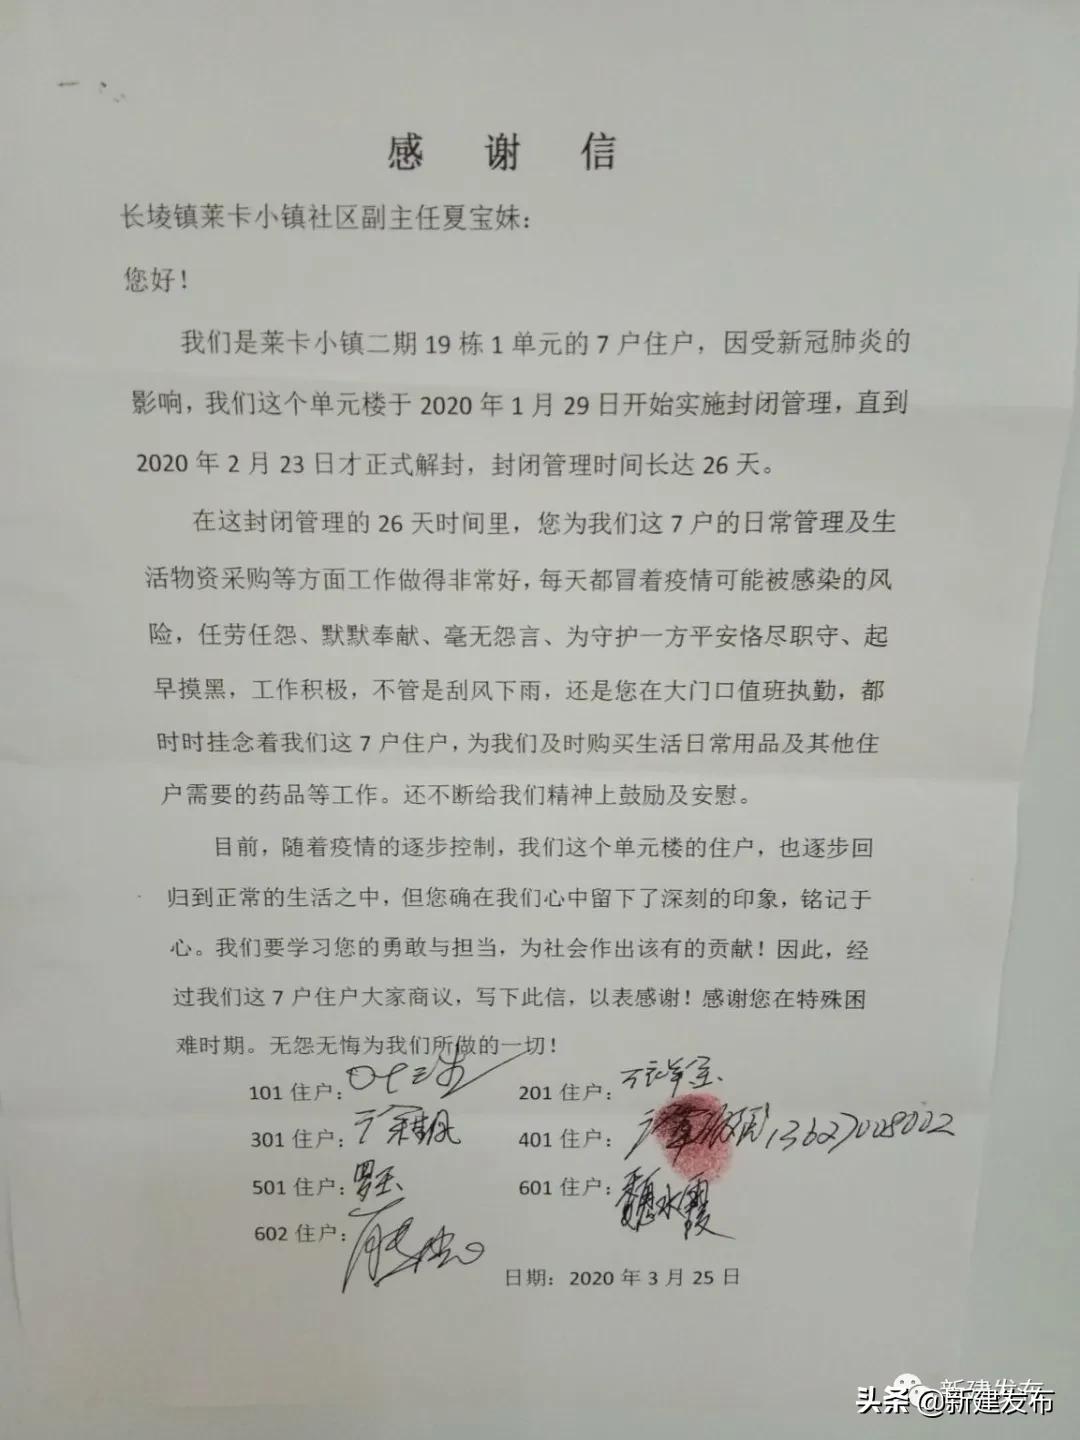 感 谢 信
长堎镇莱卡小镇社区副主任夏宝妹：
您好！
我们是莱卡小镇二期 19 栋 1 单元的 7 户住户，因受新冠肺炎的
影响，我们这个单元楼于 2020 年 1 月 29 日开始实施封闭管理，直到
2020 年 2 月 23 日才正式解封，封闭管理时间长达 26 天。
在这封闭管理的 26 天时间里，您为我们这 7 户的日常管理及生
活物资采购等方面工作做得非常好，每天都冒着疫情可能被感染的风
险，任劳任怨、默默奉献、毫无怨言、为守护一方平安恪尽职守、起
早摸黑，工作积极，不管是刮风下雨，还是您在大门口值班执勤，都
时时挂念着我们这 7 户住户，为我们及时购买生活日常用品及其他住
户需要的药品等工作。还不断给我们精神上鼓励及安慰。
目前，随着疫情的逐步控制，我们这个单元楼的住户，也逐步回
归到正常的生活之中，但您确在我们心中留下了深刻的印象，铭记于
心。我们要学习您的勇敢与担当，为社会作出该有的贡献！因此，经
过我们这 7 户住户大家商议，写下此信，以表感谢！感谢您在特殊困
难时期。无怨无悔为我们所做的一切！
101 住户： 201 住户：
301 住户： 401 住户： 13627008002
501 住户：罗玉 601 住户：魏水霞
602 住户：
日期：2020 年 3 月 25 日
新建发布
头条 @新建发布